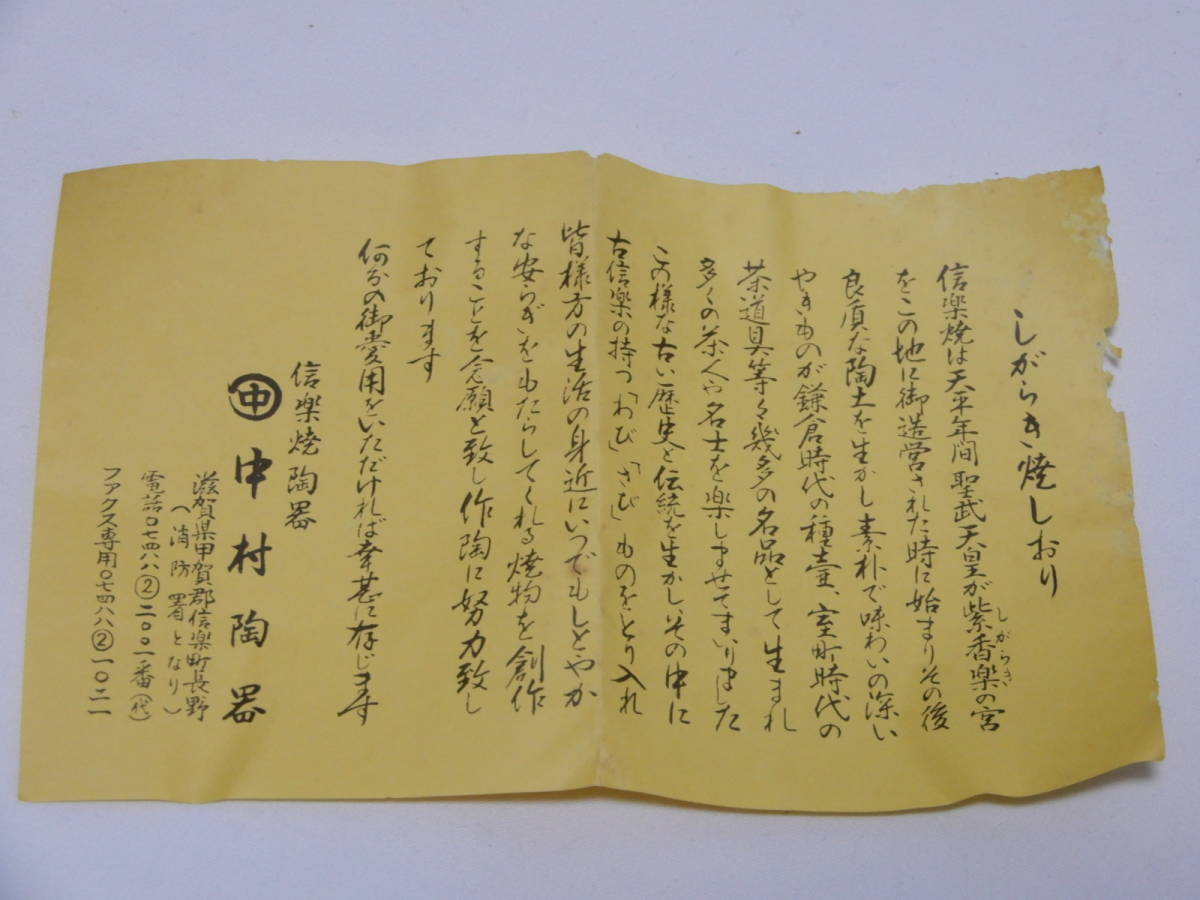 しがらき焼しおり
信楽焼は天平年間聖武天皇が紫香楽の宮
しがらき
をこの地に御造営された時に始まりその後
良質な陶土を生かし素朴で味わいの深い
やきものが鎌倉時代の種壷、室町時代の
茶道具等々幾多の名品として生まれ
多くの茶人や名士を楽しませてまいりました
この様な古い歴史と伝統を生かし、その中に
古信楽の持つ「わび」「さび」ものをとり入れ
皆様方の生活の身近にいつでもしとやか
な安らぎをもたらしてくれる焼物を創作
することを念願と致し作陶に努力致し
ております
何分の御愛用をいただければ幸甚に存じます
信楽焼陶器
㊥中村陶器
滋賀県甲賀郡信楽町長野
(消防署となり)
電話〇七四八八②二〇〇一番(代)
ファクス専用〇七四八八②一〇二一